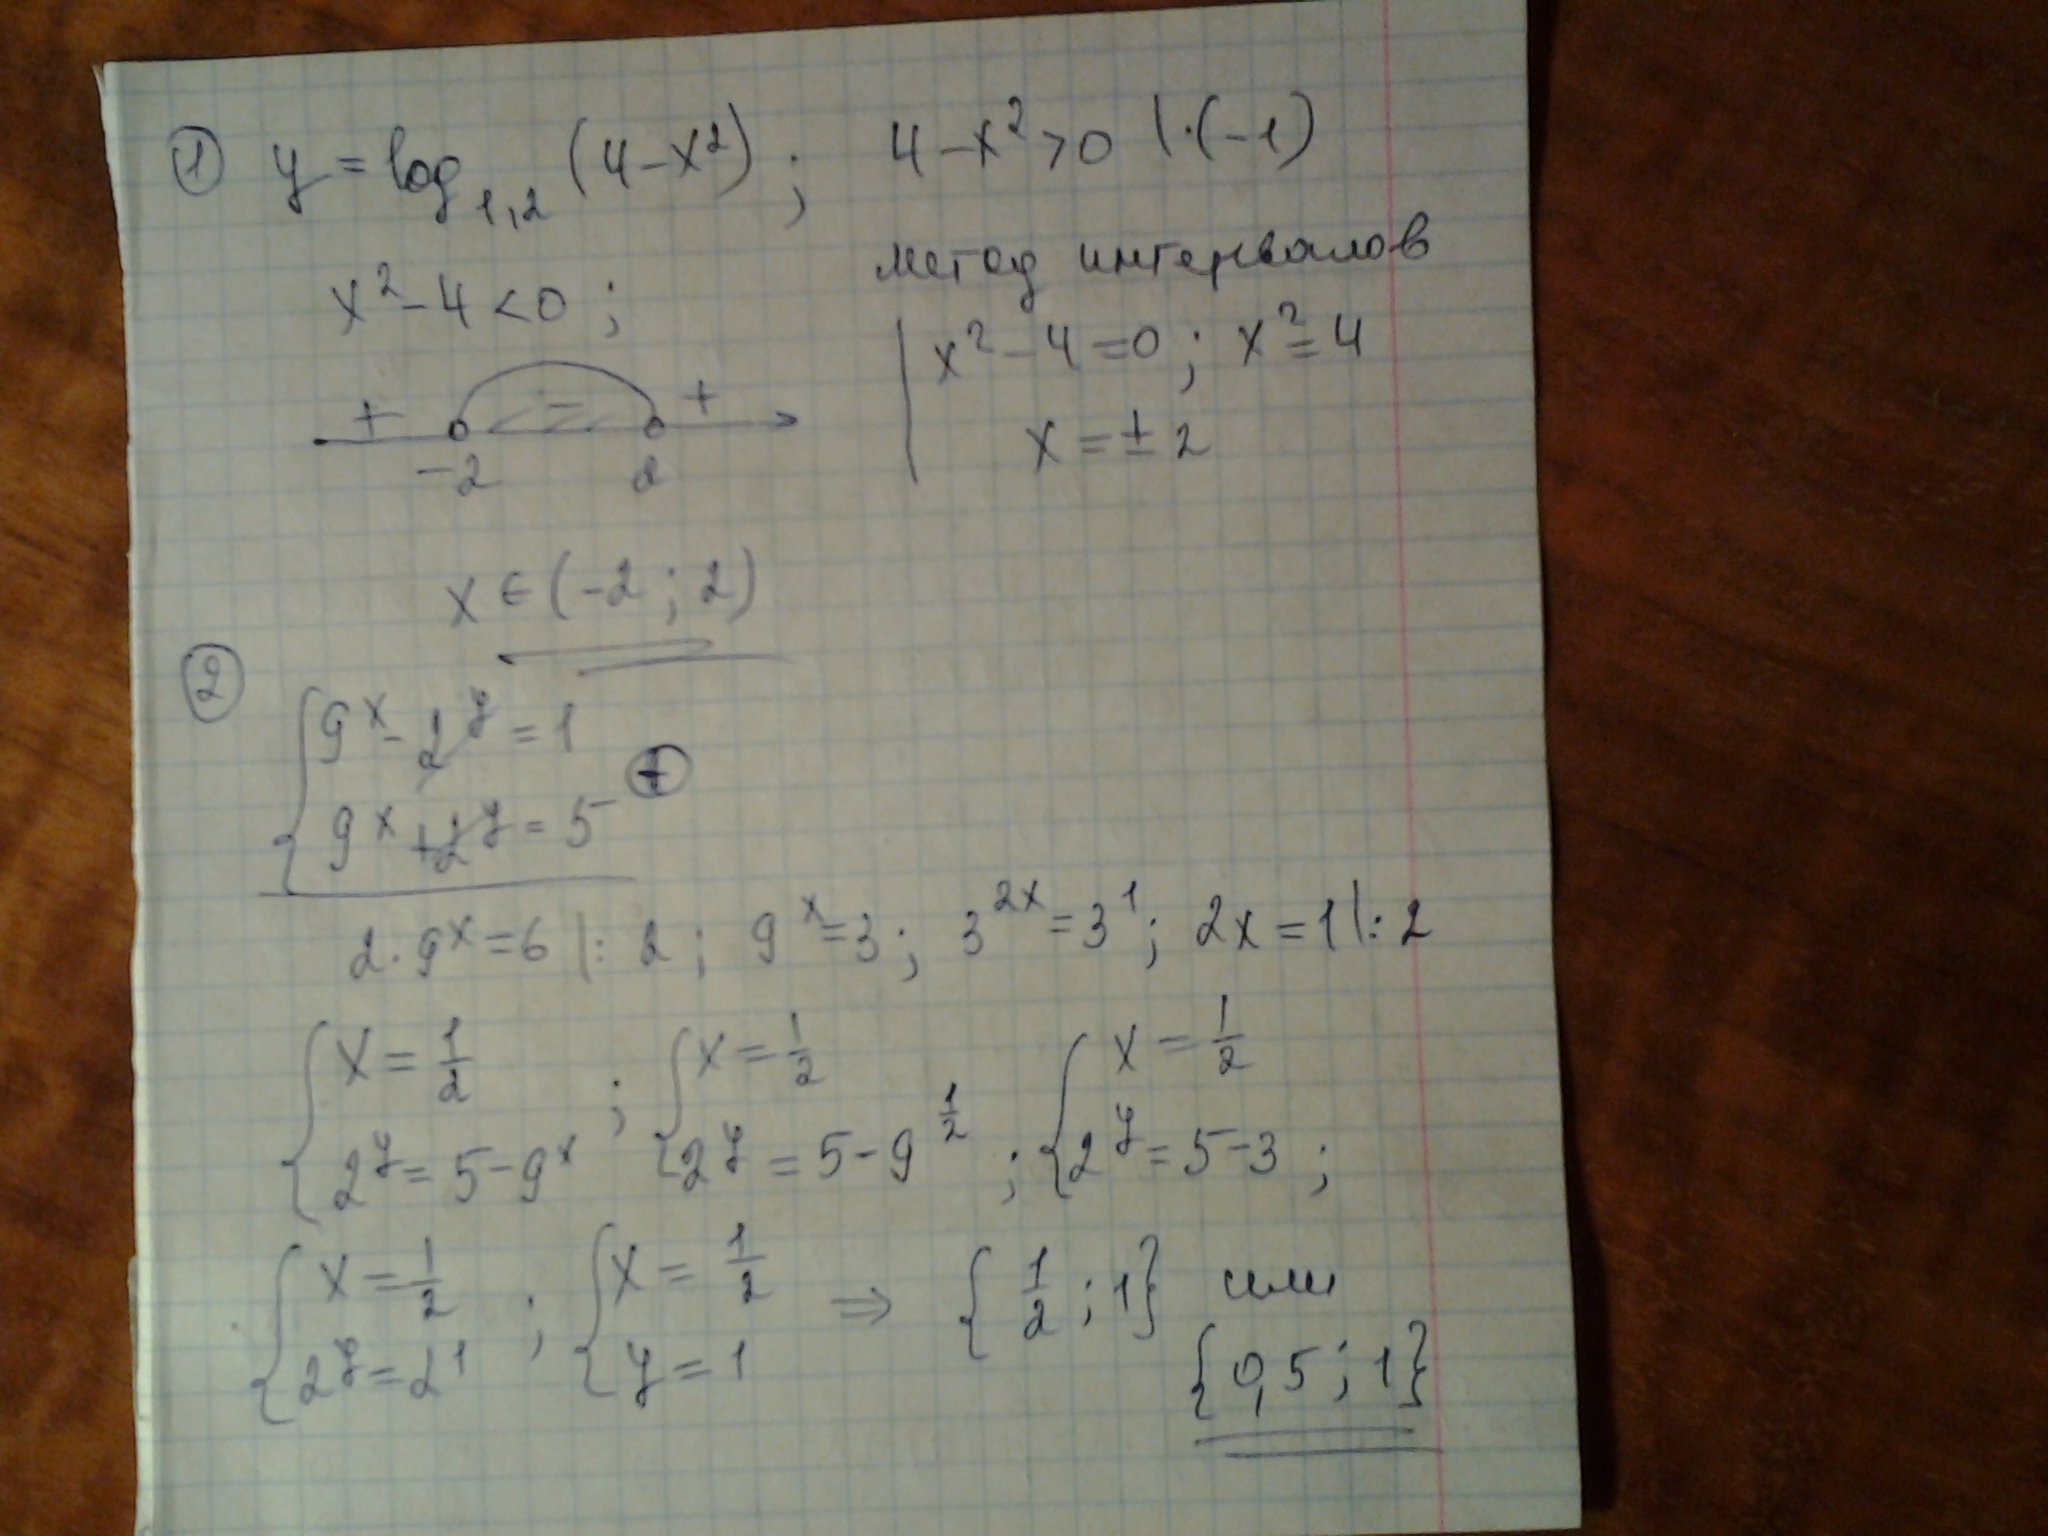 ① y = log₁,₂ (4 - x²) ; 4 - x² > 0 | · (-1)
метод интервалов
x² - 4 < 0 ; x² - 4 = 0 ; x² = 4
+ - +
-2 2 x = ± 2
x ∈ (-2 ; 2)
②
{ 9ˣ - 2ʸ = 1
{ 9ˣ + 2ʸ = 5 ⊕
2 · 9ˣ = 6 | : 2 ; 9ˣ = 3 ; 3²ˣ = 3¹ ; 2x = 1 | : 2
{ x = 1/2 ; { x = 1/2 ; { x = 1/2
{ 2ʸ = 5 - 9ˣ { 2ʸ = 5 - 9^(1/2) { 2ʸ = 5 - 3 ;
{ x = 1/2 ; { x = 1/2 ⇒ { 1/2 ; 1 } или
{ 2ʸ = 2¹ { y = 1 { 0,5 ; 1 }